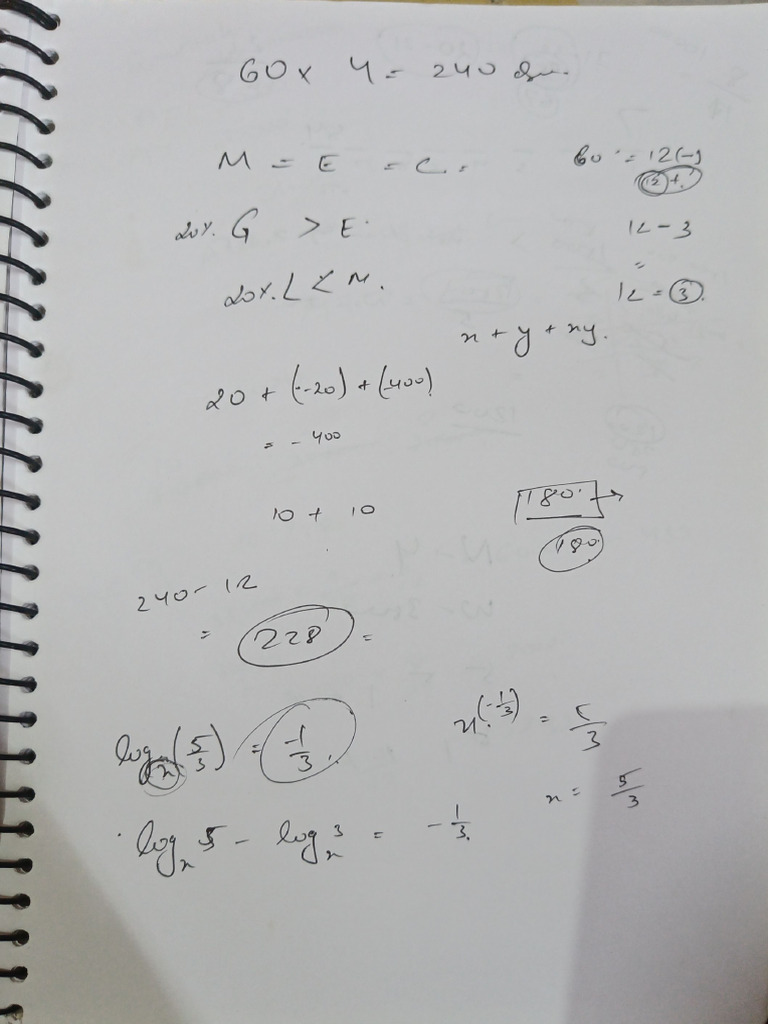 60 x 4 = 240
M = E = C.
60 = 12(-)
12 +
20%. G > E.
12 - 3
=
20%. L < M.
12 = 3.
x + y + xy.
20 + (-20) + (-400)
= - 400
10 + 10
180.
180
240 - 12
= 228 =
log x (5/3) = -1/3.
x^(-1/3) = 5/3
x = 5/3
log x 5 - log x 3 = - 1/3.